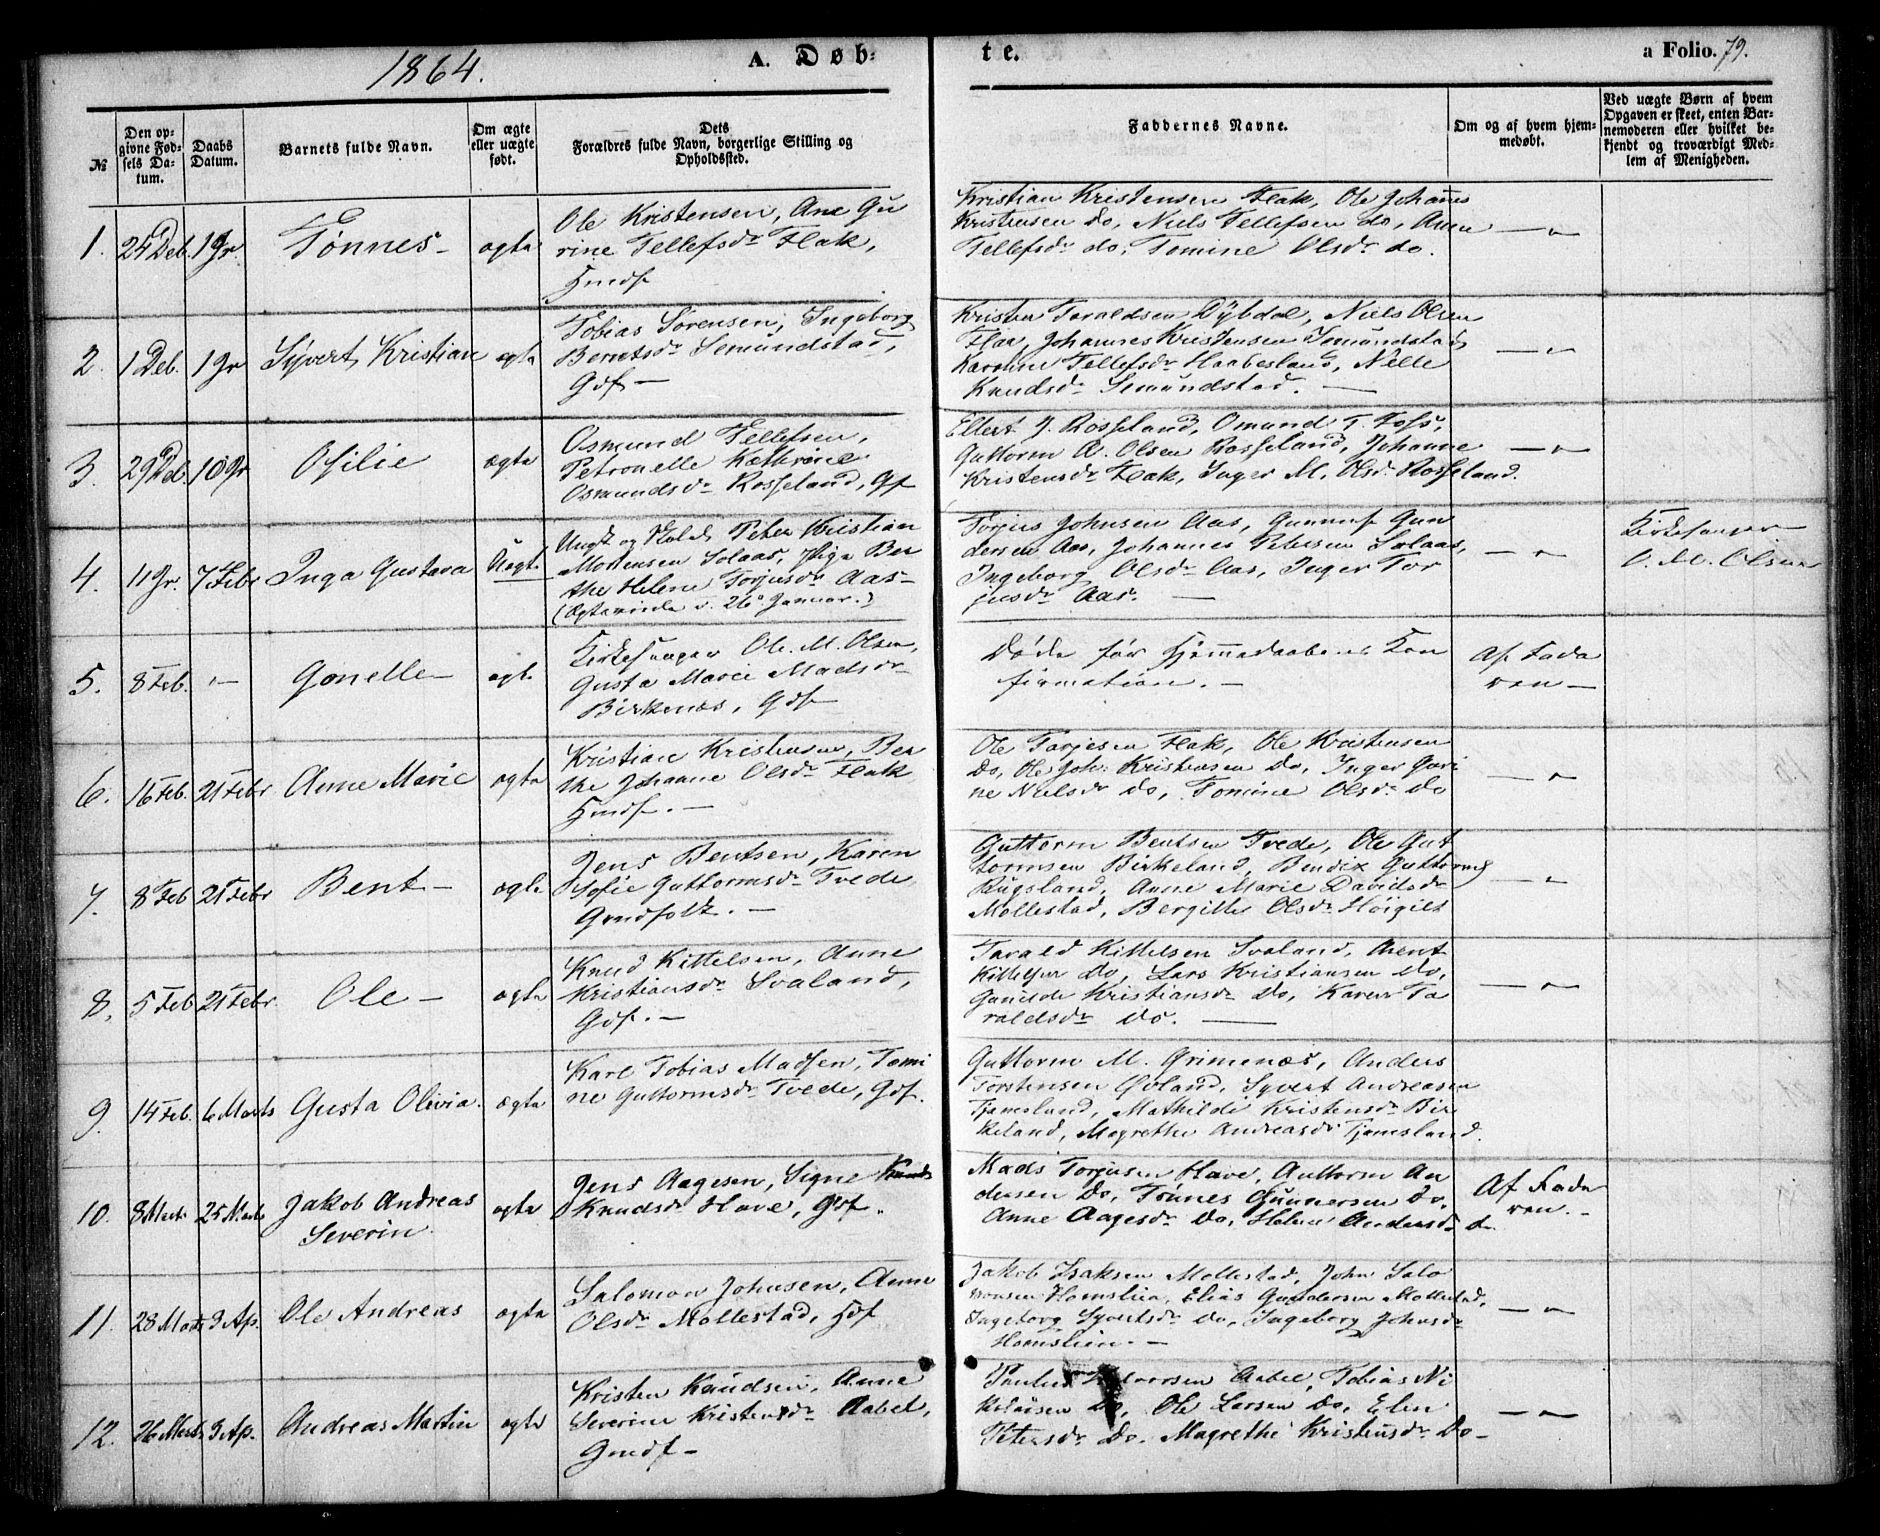 1864.
A. Døb-
te.
a Folio. 79.
№
Den op-
givne Fød-
sels Da-
tum.
Daabs
Datum.
Barnets fulde Navn.
Om ægte
eller uægte
født.
Dets
Forældres fulde Navn, borgerlige Stilling og
Opholdssted.
Faddernes Navne.
Om og af hvem hjem-
medøbt.
Ved uægte Børn af hvem
Opgaven er skeet, enten Bar-
nemoderen eller hvilket be-
kjendt og troværdigt Med-
lem af Menigheden.
1.
1 Jr.
Tønnes -
ægte
Ole Kristensen, Ane Gu
rine Tellefsdr Flak,
Hmdf
Kristian Kristensen Flak, Ole Johannes
Kristensen do, Niels Tellefsen do, Anne
Tellefsdr do, Tomine Olsdr do.
— „ —
2.
1 Deb.
1 Jr
Syvert Kristian
ægte
Tobias Sørensen, Ingeborg
Berntsdr Semundstad,
Gdf —
Kristen Taraldsen Dybdal, Niels Olsen
Flaa, Johannes Kristensen Semundstad,
Karoline Tellefsdr Haabesland, Nille
Knudsdr Semundstad. —
— „ —
3.
29 Deb.
10 Jr
Osilie
ægte
Osmund Tellefsen,
Petronelle Kathrine
Osmundsdr Rosseland, Gf
Ellert J. Rosseland, Omund T.
Guttorm A. Olsen Rosseland, Johanne
Kristensdr Flak, Inger M. Olsdr Rosseland.
— „ —
4.
11 Jr.
7 Febr
Inga Gustava
Uægte
Ungk og Peter Kristian
Mortensen Solaas, Pige Ber
the Helene Torjusdr Aas -
26 Januar.)
Torjus Johnsen Aas, Gunnuf Gun
dersen Aas, Johannes Petersen Solaas,
Ingeborg Olsdr Aas, Inger Tor
jusdr Aas. —
— „ —
Kirkesanger
O. M. Olsen
5.
8 Feb.
„ —
Gonelle —
ægte
Kirkesanger Ole M. Olsen,
Gusta Marie Madsdr
Birkenæs, Gdf
Døde før Hjemmedaabens Kon
firmation. —
Af Fade
ren —
6.
16 Feb.
21 Febr
Anne Marie
ægte
Kristian Kristensen, Ber
the Johanne Olsdr Flak
Hmdf. —
Ole Torjesen Flak, Ole Kristensen
Do, Ole Joh. Kristensen Do, Inger Guri
ne Nielsdr do, Tomine Olsdr do
— „ —
7.
8 Feb
21 Febr
Bent —
ægte
Jens Bentsen, Karen
Sofie Guttormsdr Tvede
Gmdfolk. —
Guttorm Bentsen Tvede, Ole Gut
tormsen Birkeland, Bendix Guttorms
Rugsland, Anne Marie Davidsdr
Mollestad, Bergitte Olsdr Høigilt
— „ —
8.
5 Feb
21 Febr.
Ole —
ægte
Knud Kittelsen, Anne
Kristiansdr Svaland,
Gdf. —
Tarald Kittelsen Svaland, Arent
Kittelsen Do, Lars Kristiansen Do,
Gunilde Kristiansdr Do, Karen Ta
raldsdr Do. —
— „ —
9.
14 Feb.
6 Marts
Gusta Olivia.
ægte
Karl Tobias Madsen, Tomi
ne Guttormsdr Tvede, Gdf.
Guttorm M. Grimenæs, Anders
Torstensen Øvland, Syvert Andreasen
Tjamsland, Mathilde Kristensdr Bir
keland, Magrethe Andreasdr Tjamsland.
10.
8 Marts
25 Marts
Jakob Andreas
Severin.
ægte
Jens Aagesen, Signe Knuds
Knudsdr Have, Gdf.
Mads Torjusen Have, Guttorm An
dersen Do, Tønnes Gunnersen Do,
Anne Aagesdr Do, Helene Andersdr do
Af Fade
ren. —
11.
28 Marts
3 Ap.
Ole Andreas
ægte
Salomon Johnsen, Anne
Olsdr Mollestad, Hdf
Jakob Isaksen Mollestad, John Salo
monsen Homslien, Elias Gundersen Mollestad,
Ingeborg Syvertsdr Do, Ingeborg Johnsdr
Homslien. —
— „ —
12.
26 Marts
3 Ap.
Andreas Martin
ægte
Kristen Knudsen, Anne
Severine Kristensdr Aabel,
Gmdf —
Aabel, Tobias Ni
kolaisen Do, Ole Larsen Do, Elen
Petersdr Do. Magrethe Kristensdr Do —
— „ —